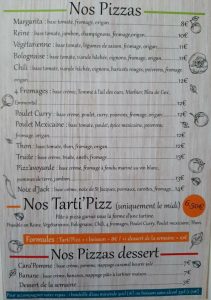 Nos Pizzas
Margarita : base tomate, fromage, origan 8€
Reine : base tomate, jambon, champignons, fromage, origan 10€
Végétarienne : base tomate, légumes de saison, fromage, origan
Bolognaise : base tomate, viande hâchée, fromage, origan 11€
Chili : base tomate, viande hâchée, oignons, haricots rouges, poivrons, fromage, origan
4 Fromages : crème, fromage, Tomme à l'ail des ours, Morbier, Bleu de Gex,
Emmental 12€
Poulet Curry : base crème, poulet, curry, poivrons, fromage, origan 12€
Poulet Mexicaine : base tomate, poulet, épice mexicaine, poivron, fromage, origan
Thon : base tomate, thon, fromage, origan 12€
Truite : base crème, truite, aneth, fromage
Pizz'avoyarde : base crème, fromage à fondu
pomme de terre, jambon 13€
Note d'Jack : base crème, noix de St Jacques, poireaux, carottes, fromage 14€
Nos Tarti'Pizz (uniquement le midi) 6,50€
Pâte à pizza garnie sous la forme d'une tartine
Formules : Tarti'Pizz + 1 boisson = 8€ / + dessert de la semaine = 10€
Nos Pizzas dessert
Cara'Pomme : base crème, pommes, nappage caramel beurre salé
Banana : base crème, bananes, nappage pâte à tartiner noisette